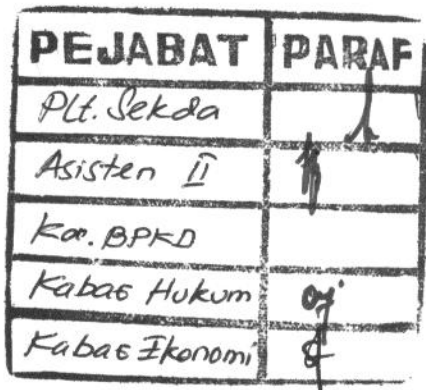 PEJABAT PARAF
Plt. Sekda
Asisten II
Ka. BPKD
Kabag Hukum
Kabag Ekonomi